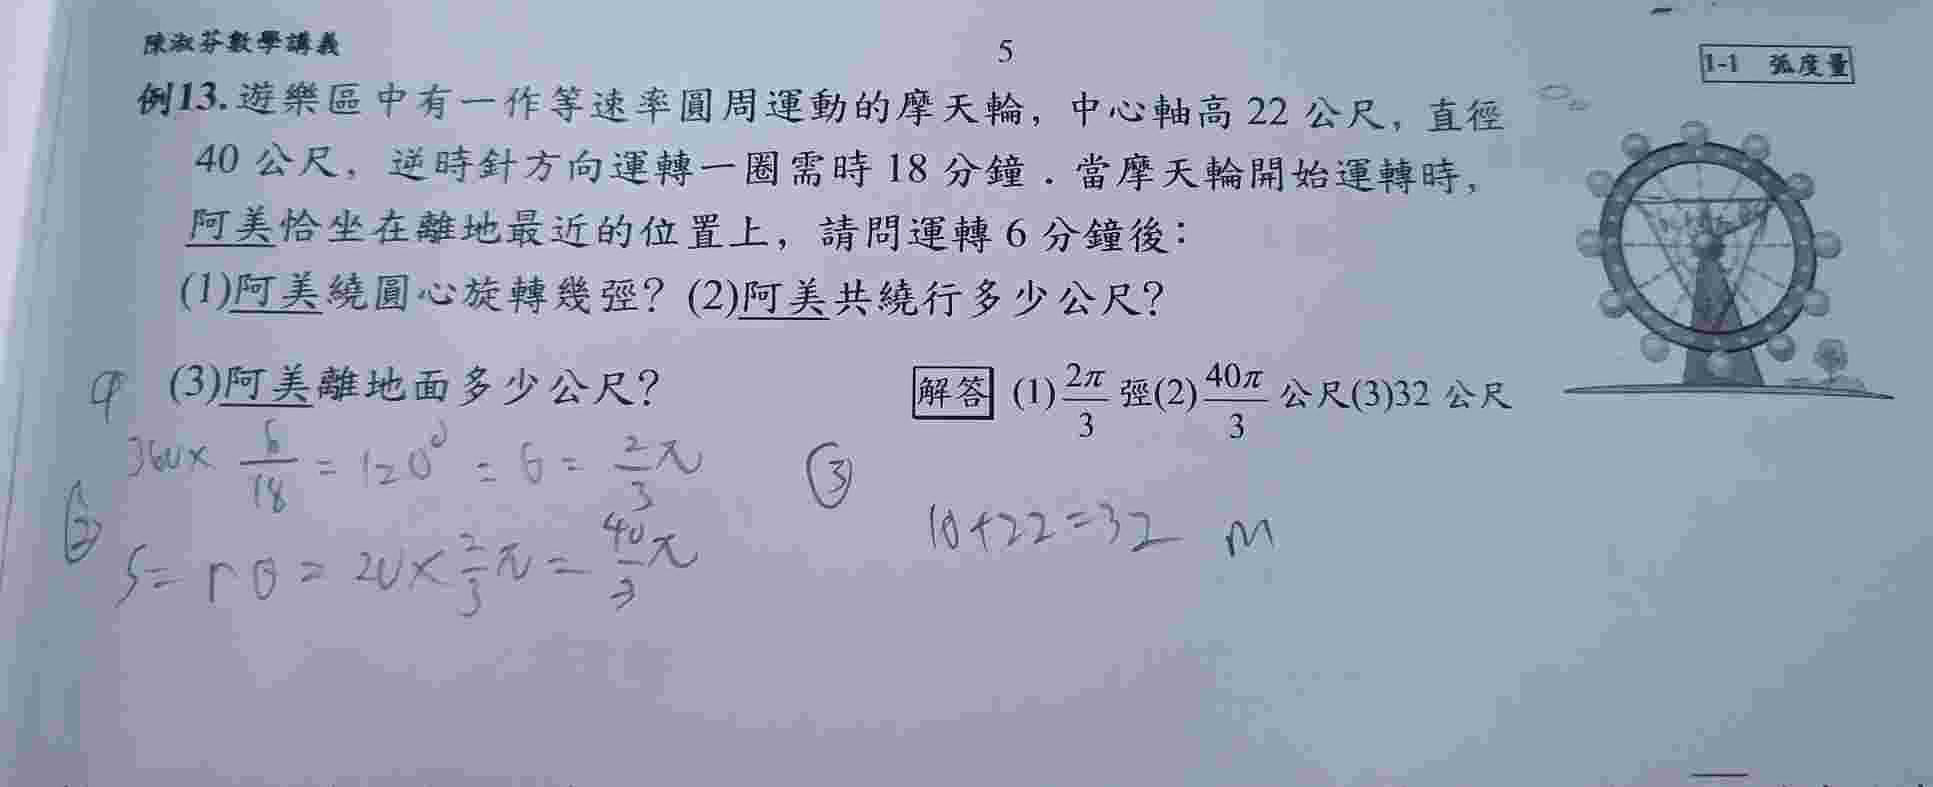 陳淑芬數學講義
5
1-1 弧度量
例13.遊樂區中有一作等速率圓周運動的摩天輪，中心軸高 22 公尺，直徑
40 公尺，逆時針方向運轉一圈需時 18 分鐘．當摩天輪開始運轉時，
阿美恰坐在離地最近的位置上，請問運轉 6 分鐘後：
(1)阿美繞圓心旋轉幾弳？(2)阿美共繞行多少公尺？
(3)阿美離地面多少公尺？
解答 (1) 2π/3 弳(2) 40π/3 公尺(3)32 公尺
360× 6/18 = 120° = θ = 2/3 π
② S = rθ = 20 × 2/3 π = 40/3 π
③
10+22=32 m